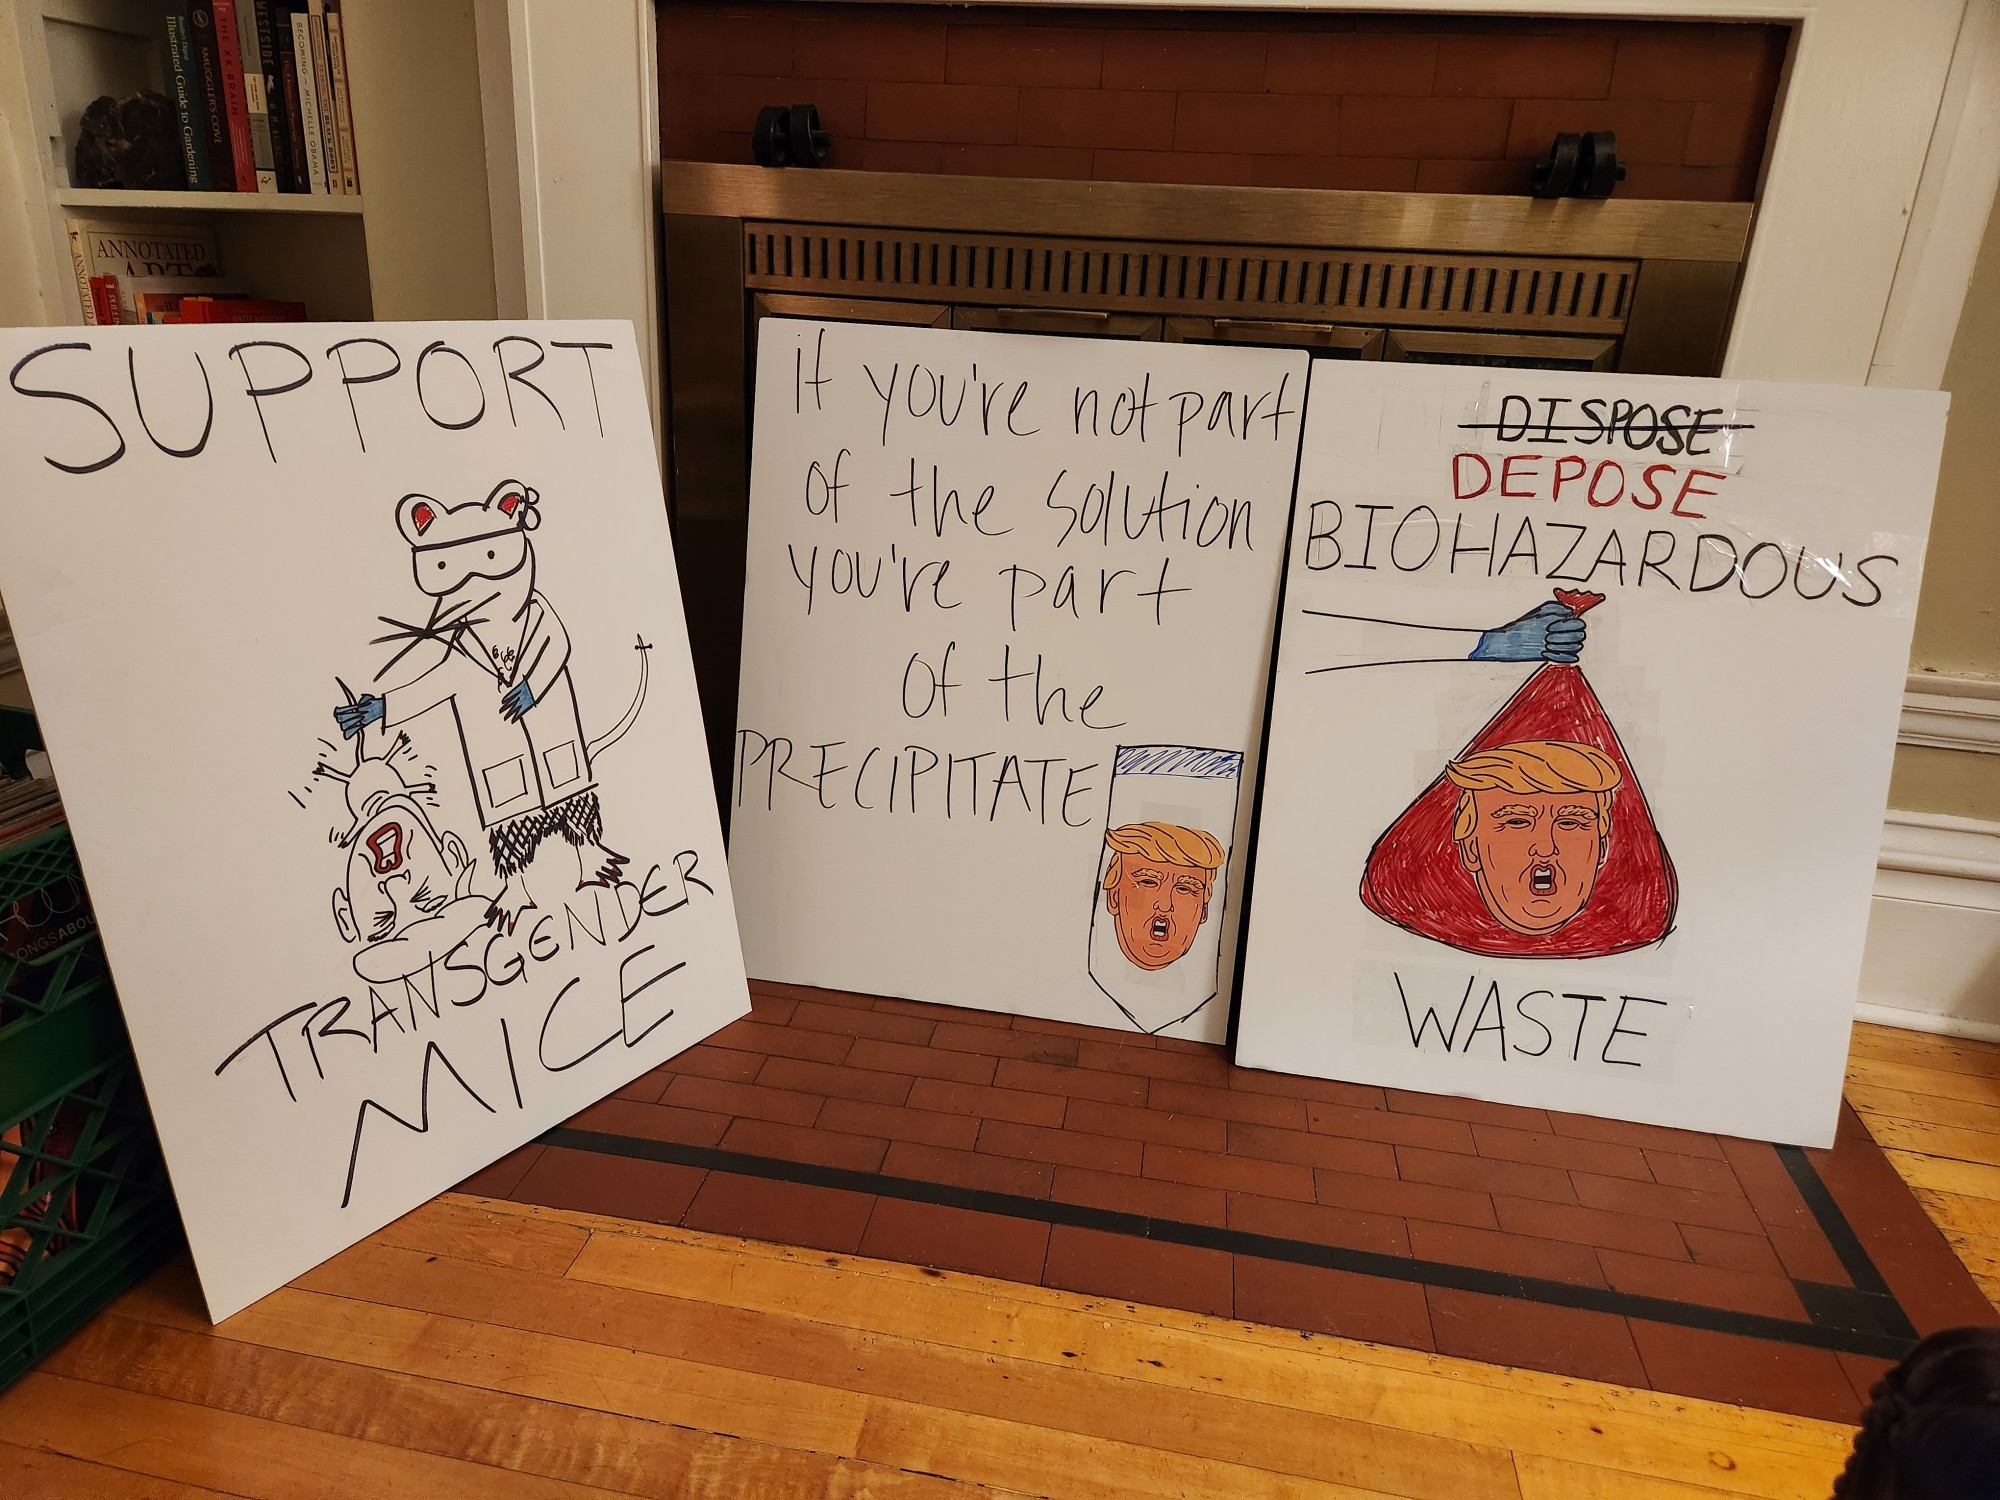 Reader's Digest
Illustrated Guide to Gardening
SMUGGLER'S COVE
THE XX BRAIN
WESTSIDE
BECOMING - MICHELLE OBAMA
ANNOTATED
SUPPORT
TRANSGENDER
MICE
if you're not part
of the solution
you're part
of the
PRECIPITATE
DISPOSE
DEPOSE
BIOHAZARDOUS
WASTE